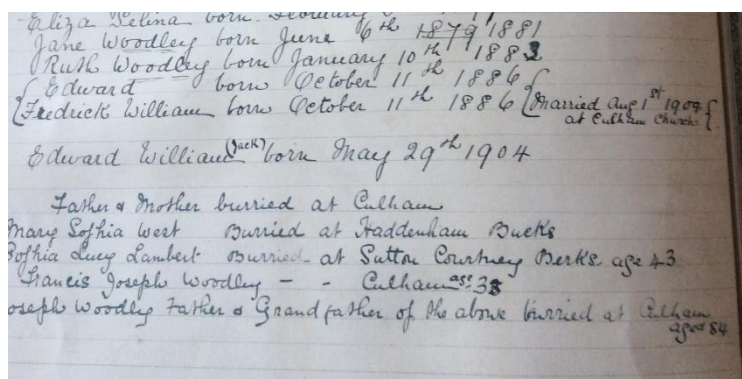 Eliza Selina born
Jane Woodley born June 6th 1879 1881
Ruth Woodley born January 10th 1883
{ Edward born October 11th 1886 {
{ Fredrick William born October 11th 1886 { Married Aug 1st 1909 {
at Culham Church
Edward William (Jack) born May 29th 1904
Father & Mother burried at Culham
Mary Sophia West Burried at Haddenham Bucks
Sophia Lucy Lambert Burried at Sutton Courtney Berks age 43
Francis Joseph Woodley - - Culham age 38
Joseph Woodley Father & Grandfather of the above burried at Culham
aged 84